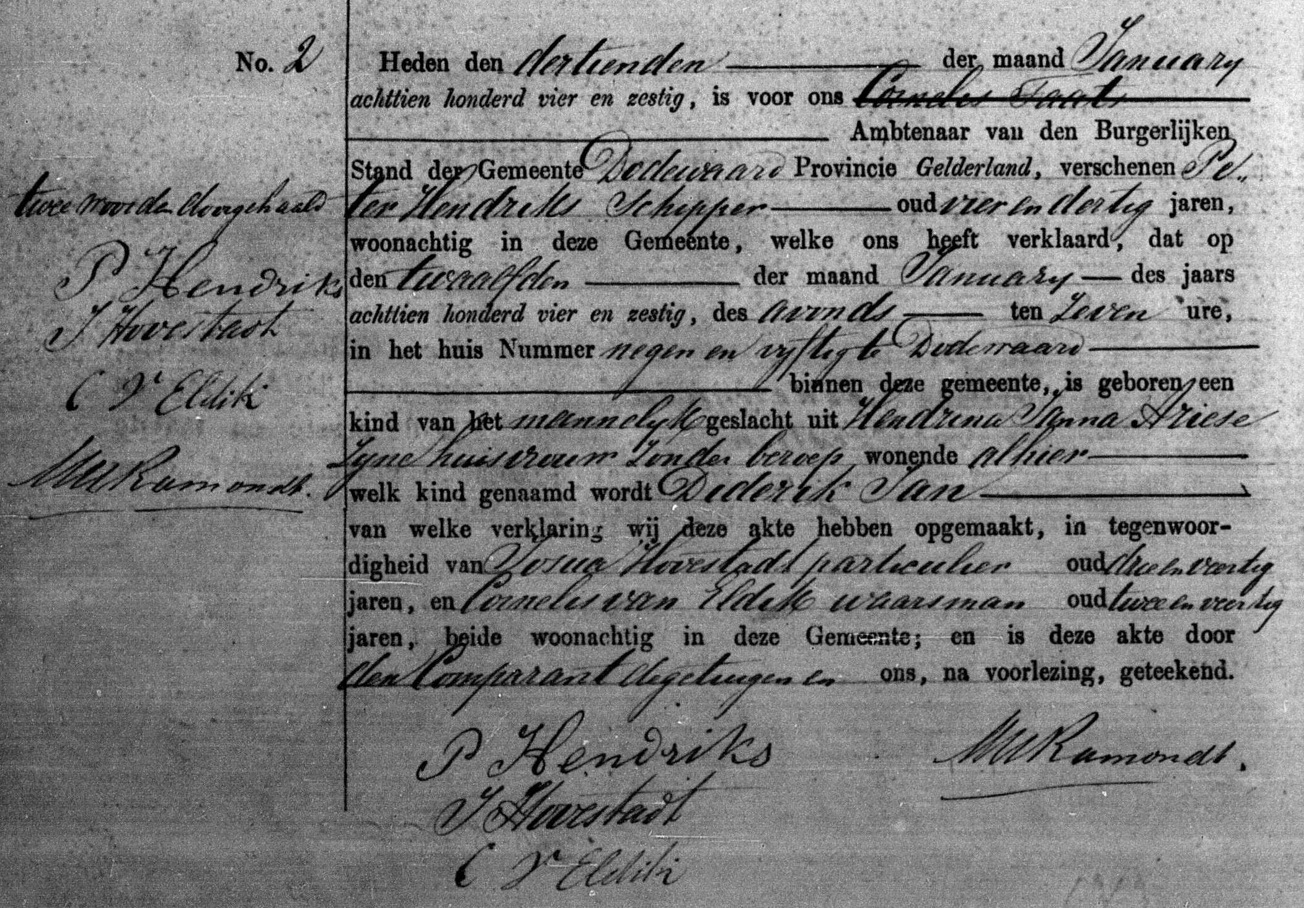 No. 2
Heden den dertienden der maand January
achttien honderd vier en zestig, is voor ons Cornelis Taats
Ambtenaar van den Burgerlijken
Stand der Gemeente Dodewaard Provincie Gelderland, verschenen Pe„
ter Hendriks Schipper oud vier en dertig jaren,
woonachtig in deze Gemeente, welke ons heeft verklaard, dat op
den twaalfden der maand January des jaars
achttien honderd vier en zestig, des avonds ten Zeven ure,
in het huis Nummer negen en vyftig te Dodewaard
binnen deze gemeente, is geboren een
kind van het mannelyk geslacht uit Hendrina Janna Ariese
Zyne huisvrouw Zonder beroep wonende alhier
welk kind genaamd wordt Diderik Jan
van welke verklaring wij deze akte hebben opgemaakt, in tegenwoor-
digheid van Josua Hovestadt particulier oud drie en veertig
jaren, en Cornelis van Eldik waarsman oud twee en veertig
jaren, beide woonachtig in deze Gemeente; en is deze akte door
den Comparant de getuigen en ons, na voorlezing, geteekend.
P Hendriks
J Hovestadt
C v Eldik
twee woorden doorgehaald
P Hendriks
J Hovestadt
C v Eldik